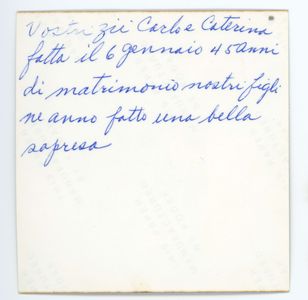 Vostri zii Carlo e Caterina
fatta il 6 gennaio 45 anni
di matrimonio nostri figli
ne anno fatto una bella
sapresa